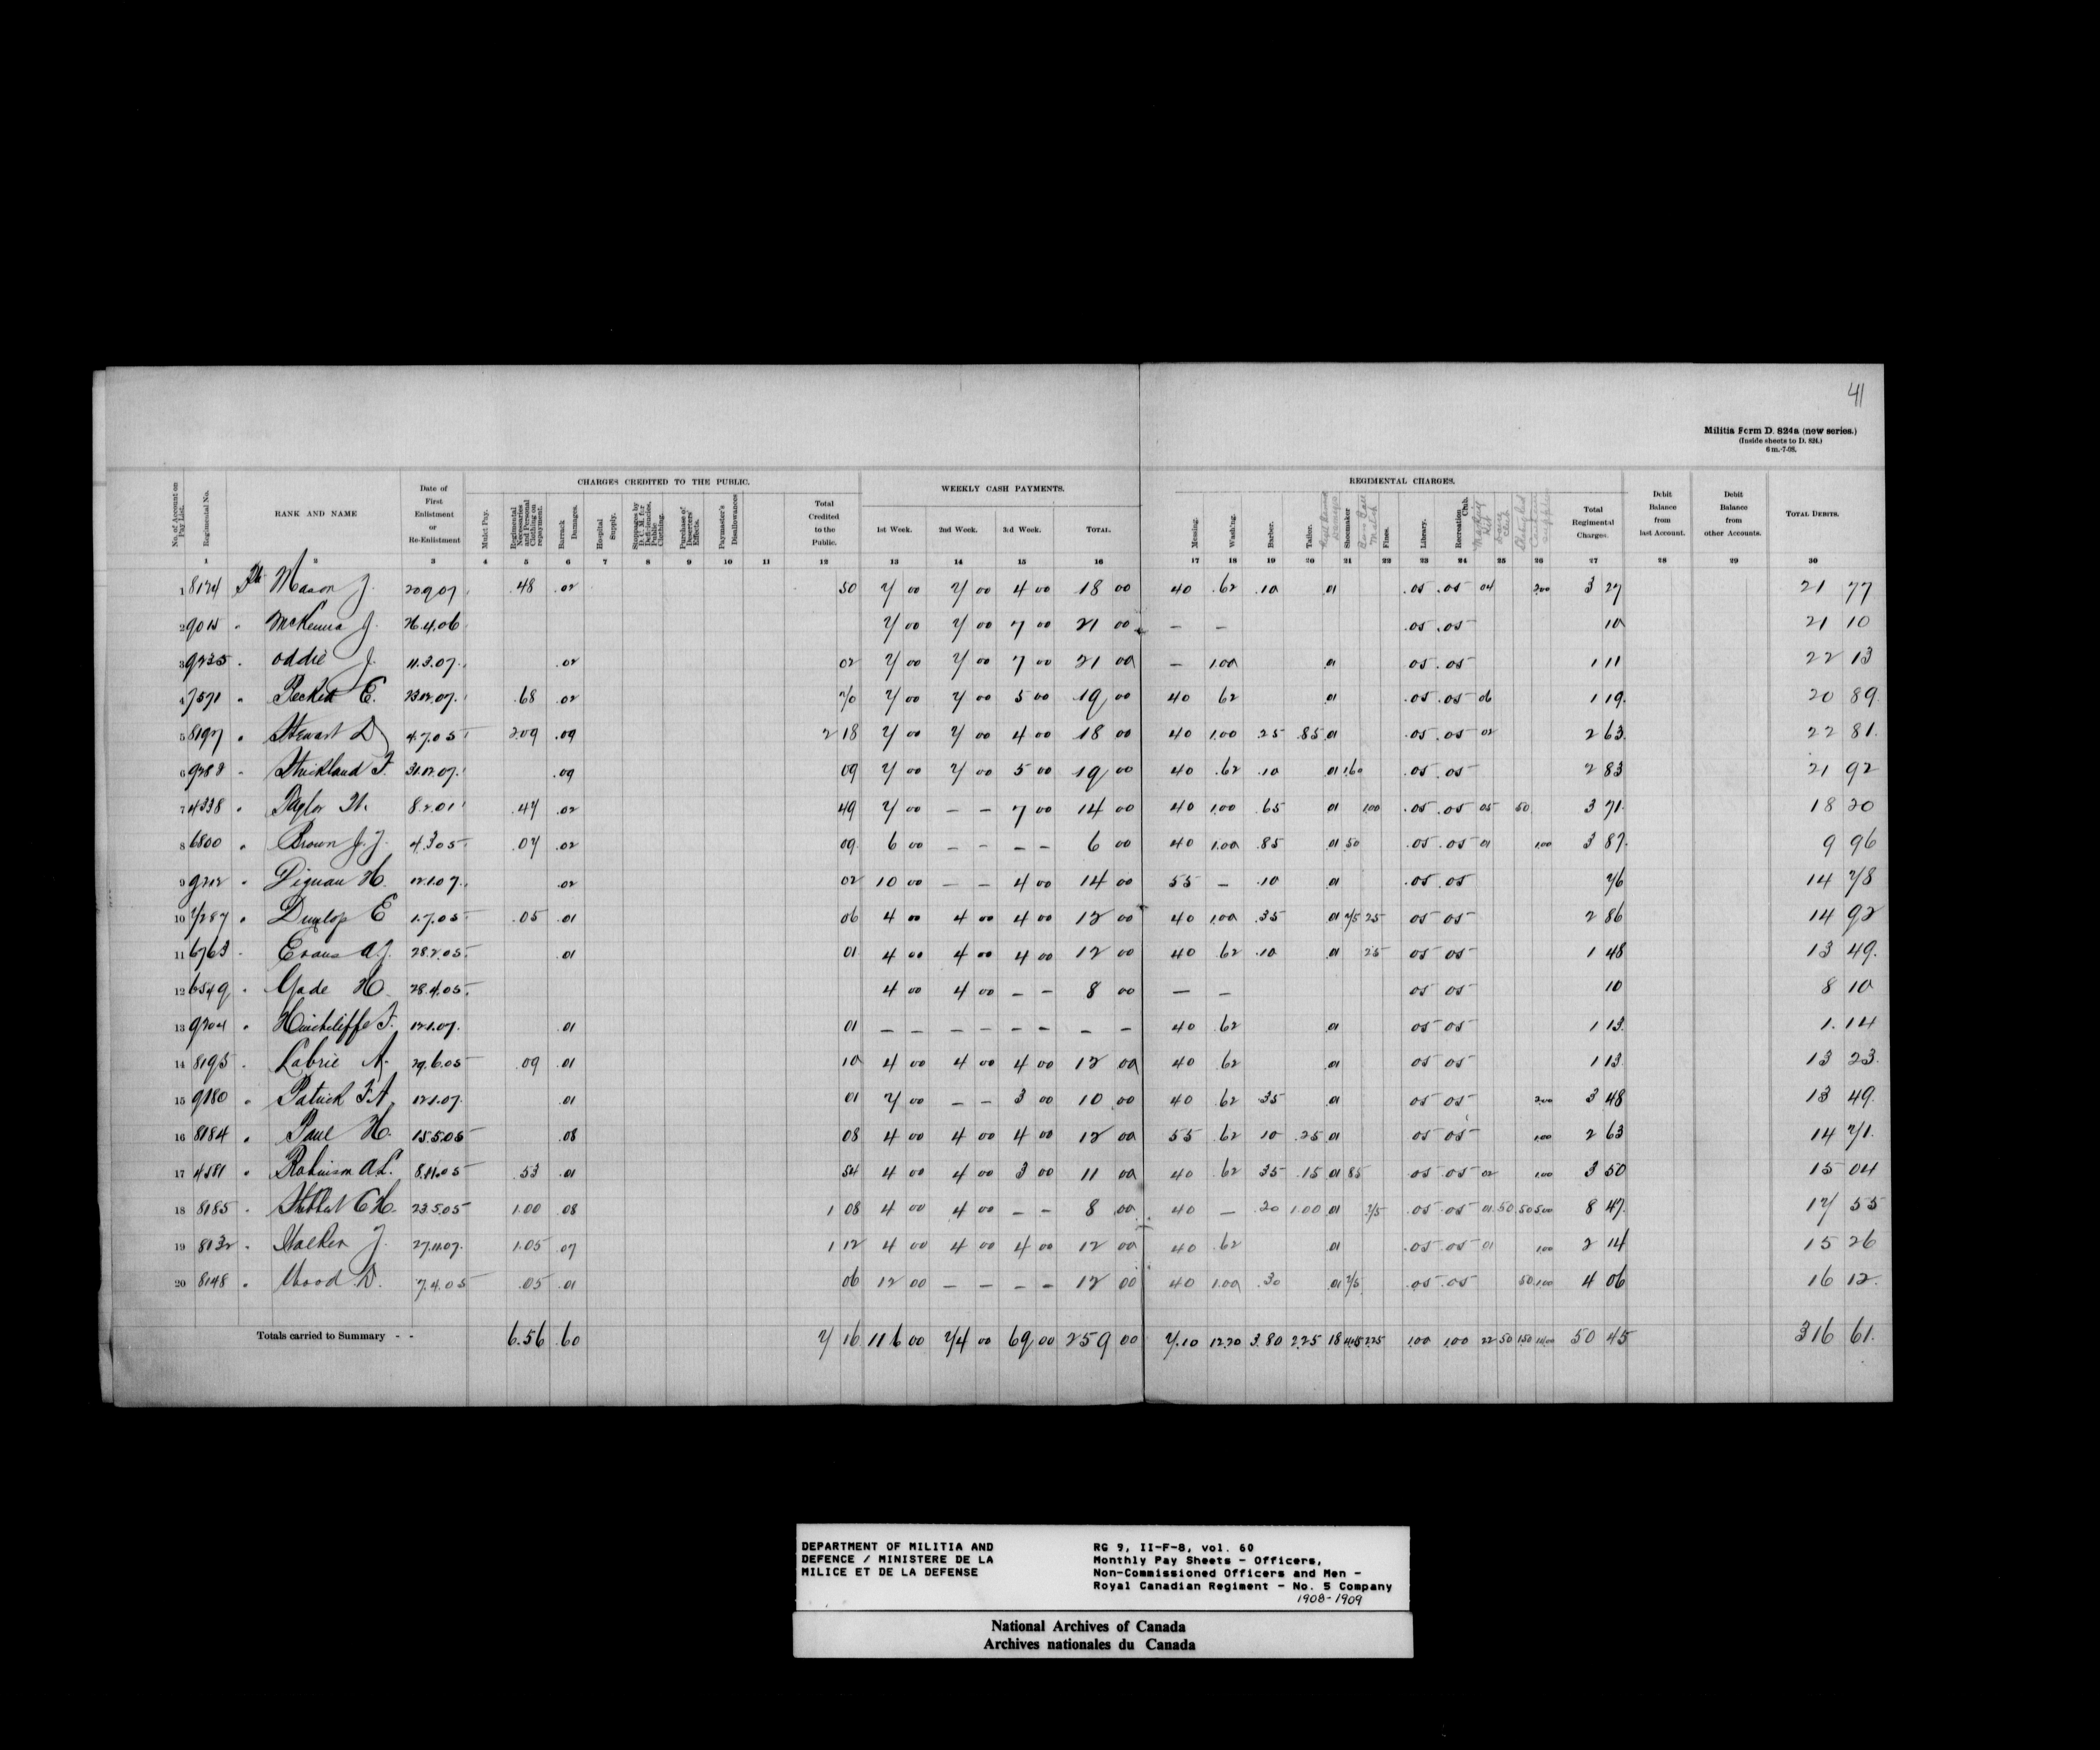 41
Militia Form D. 824a (new series.)
(Inside sheets to D. 824.)
6 m.-7-08.
CHARGES CREDITED TO THE PUBLIC. WEEKLY CASH PAYMENTS. REGIMENTAL CHARGES.
No. of Account on Pay List. Regimental No. RANK AND NAME Date of First Enlistment or Re-Enlistment Mulct Pay. Regimental Necessaries and Personal Clothing on repayment. Barrack Damages. Hospital Supply. Stoppages by D. C. M. for Deficiencies, Public Clothing. Purchase of Deserters' Effects. Paymaster's Disallowances Total Credited to the Public. 1st Week. 2nd Week. 3rd Week. TOTAL. Messing. Washing. Barber. Tailor. Shoemaker Fines. Library. Recreation Club. Total Regimental Charges. Debit Balance from last Account. Debit Balance from other Accounts. TOTAL DEBITS.
1 2 3 4 5 6 7 8 9 10 11 12 13 14 15 16 17 18 19 20 21 22 23 24 25 26 27 28 29 30
1 8174 Pte Mason J. 20.9.07 .48 .02 50 7 00 7 00 4 00 18 00 40 .62 .10 .01 .05 .05 04 2.00 3 27 21 77
2 9015 " McKenna J. 26.4.06 7 00 7 00 7 00 21 00 – – .05 .05 10 21 10
3 9235 " Oddie J. 11.3.07. .02 02 7 00 7 00 7 00 21 00 – 1.00 .01 05 .05 1 11 22 13
4 7571 " Peckett E. 23.12.07. .68 .02 70 7 00 7 00 5 00 19 00 40 62 .01 .05 .05 06 1 19. 20 89.
5 8197 " Stewart D 4.7.05 2.09 .09 2 18 7 00 7 00 4 00 18 00 40 1.00 .25 .85 .01 .05 .05 02 2 63. 22 81.
6 9288 " Strickland F. 31.12.07. .09 09 7 00 7 00 5 00 19 00 40 .62 .10 .01 1.60 .05 .05 2 83 21 92
7 4338 " Taylor W. 8.2.01 .47 .02 49 7 00 – – 7 00 14 00 40 1.00 .65 .01 1.00 .05 .05 05 50 3 71. 18 20
8 6800 " Brown J.J. 4.3.05 .07 .02 09 6 00 – – – – 6 00 40 1.00 .85 .01 50 .05 .05 01 1.00 3 87. 9 96
9 9212 " Dignan H. 12.1.07. .02 02 10 00 – – 4 00 14 00 55 – .10 .01 .05 .05 76 14 78
10 7287 " Dunlop E 1.7.05 .05 .01 06 4 00 4 00 4 00 12 00 40 1.00 .35 .01 75 25 05 05 2 86 14 92
11 6763 " Evans A.J. 28.2.05. .01 01 4 00 4 00 4 00 12 00 40 .62 .10 .01 25 05 05 1 48 13 49.
12 6549 " Gade H. 28.4.05. 4 00 4 00 – – 8 00 – – 05 05 10 8 10
13 9204 " Hinchcliffe F. 12.1.07. .01 01 – – – – – – – – 40 .62 .01 05 05 1 13. 1. 14
14 8195 " Labrie A. 29.6.05 .09 .01 10 4 00 4 00 4 00 12 00 40 .62 .01 05 05 1 13. 13 23.
15 9180 " Patrick F.A. 12.1.07. .01 01 7 00 – – 3 00 10 00 40 .62 .35 .01 05 05 2.00 3 48 13 49.
16 8184 " Paul H. 15.5.05 .08 08 4 00 4 00 4 00 12 00 55 .62 10 .25 01 05 05 1.00 2 63 14 71.
17 4581 " Robinson A.L. 8.11.05 .53 .01 54 4 00 4 00 3 00 11 00 40 .62 35 .15 01 85 05 05 02 1.00 3 50 15 04
18 8185 " C.H. 23.5.05 1.00 08 1 08 4 00 4 00 – – 8 00 40 – .20 1.00 01 75 .05 05 01 50 50 5.00 8 47. 17 55
19 8132 " Walker J. 27.11.07. 1.05 07 1 12 4 00 4 00 4 00 12 00 40 .62 .01 .05 .05 01 1.00 2 14 15 26
20 8148 " Wood D. 7.4.05 .05 .01 06 12 00 – – – – 12 00 40 1.00 .30 .01 75 .05 .05 50 1.00 4 06 16 12.
Totals carried to Summary - - 6.56 .60 7 16 116 00 74 00 69 00 259 00 7.10 12.20 3.80 2.25 18 4.45 2.25 1.00 1.00 22 50 1.50 14.00 50 45 316 61.
DEPARTMENT OF MILITIA AND
DEFENCE / MINISTERE DE LA
MILICE ET DE LA DEFENSE
RG 9, II-F-8, vol. 60
Monthly Pay Sheets - Officers,
Non-Commissioned Officers and Men -
Royal Canadian Regiment - No. 5 Company
1908-1909
National Archives of Canada
Archives nationales du Canada